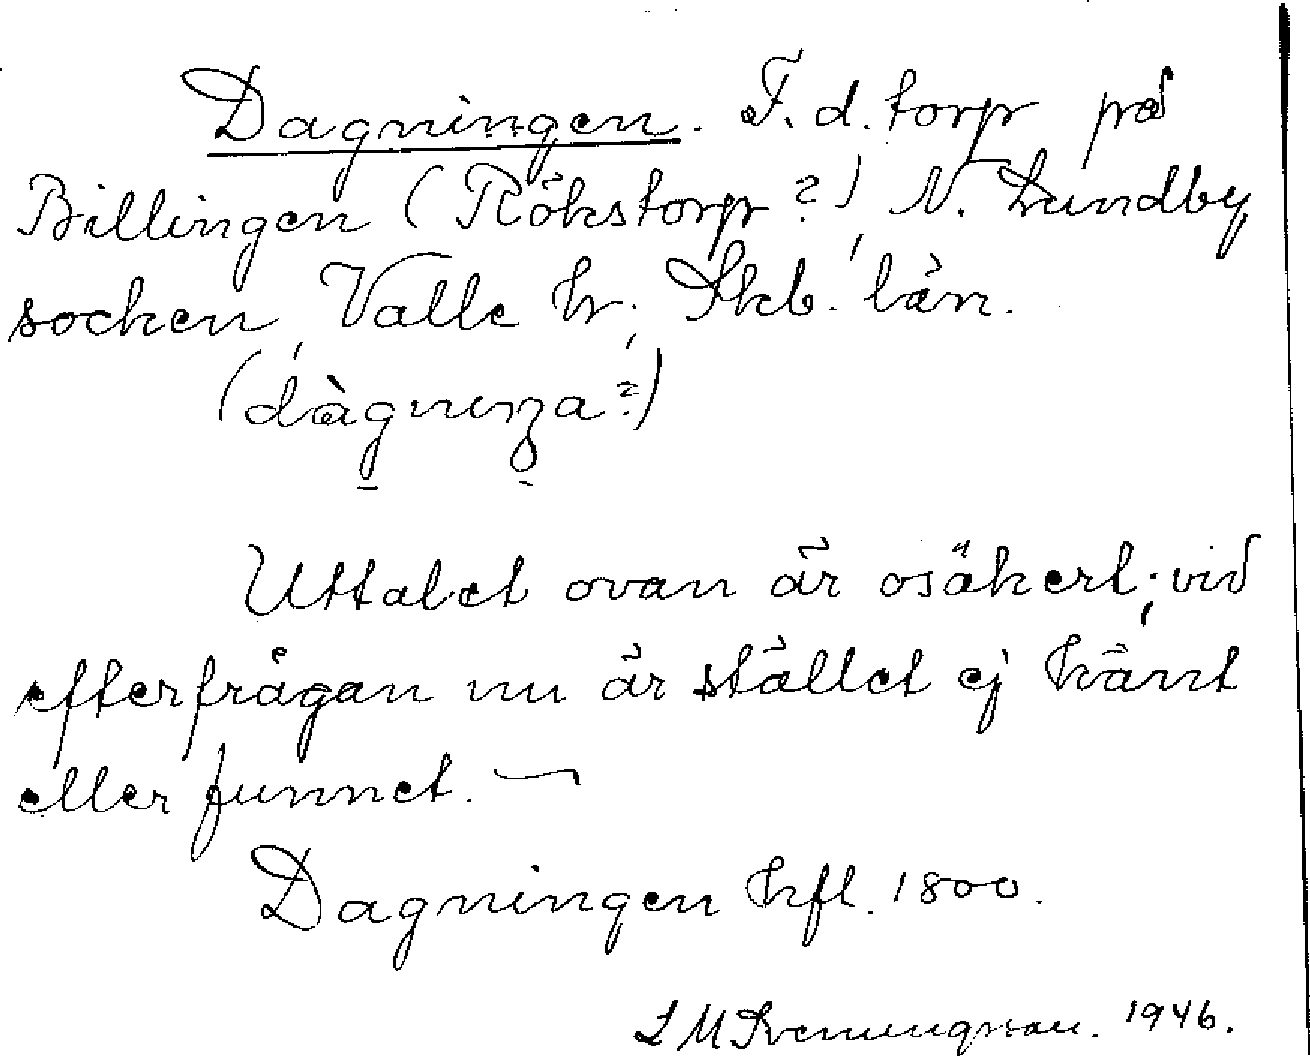 Dagningen. F. d. torp på
Billingen (Rökstorp?), N. Lundby
socken, Valle hd, Skb. län.
(dàgnenga?)
Uttalet ovan är osäkert; vid
efterfrågan nu är stället ej känt
eller funnet. —
Dagningen hfl. 1800.
L M Svenungsson. 1946.